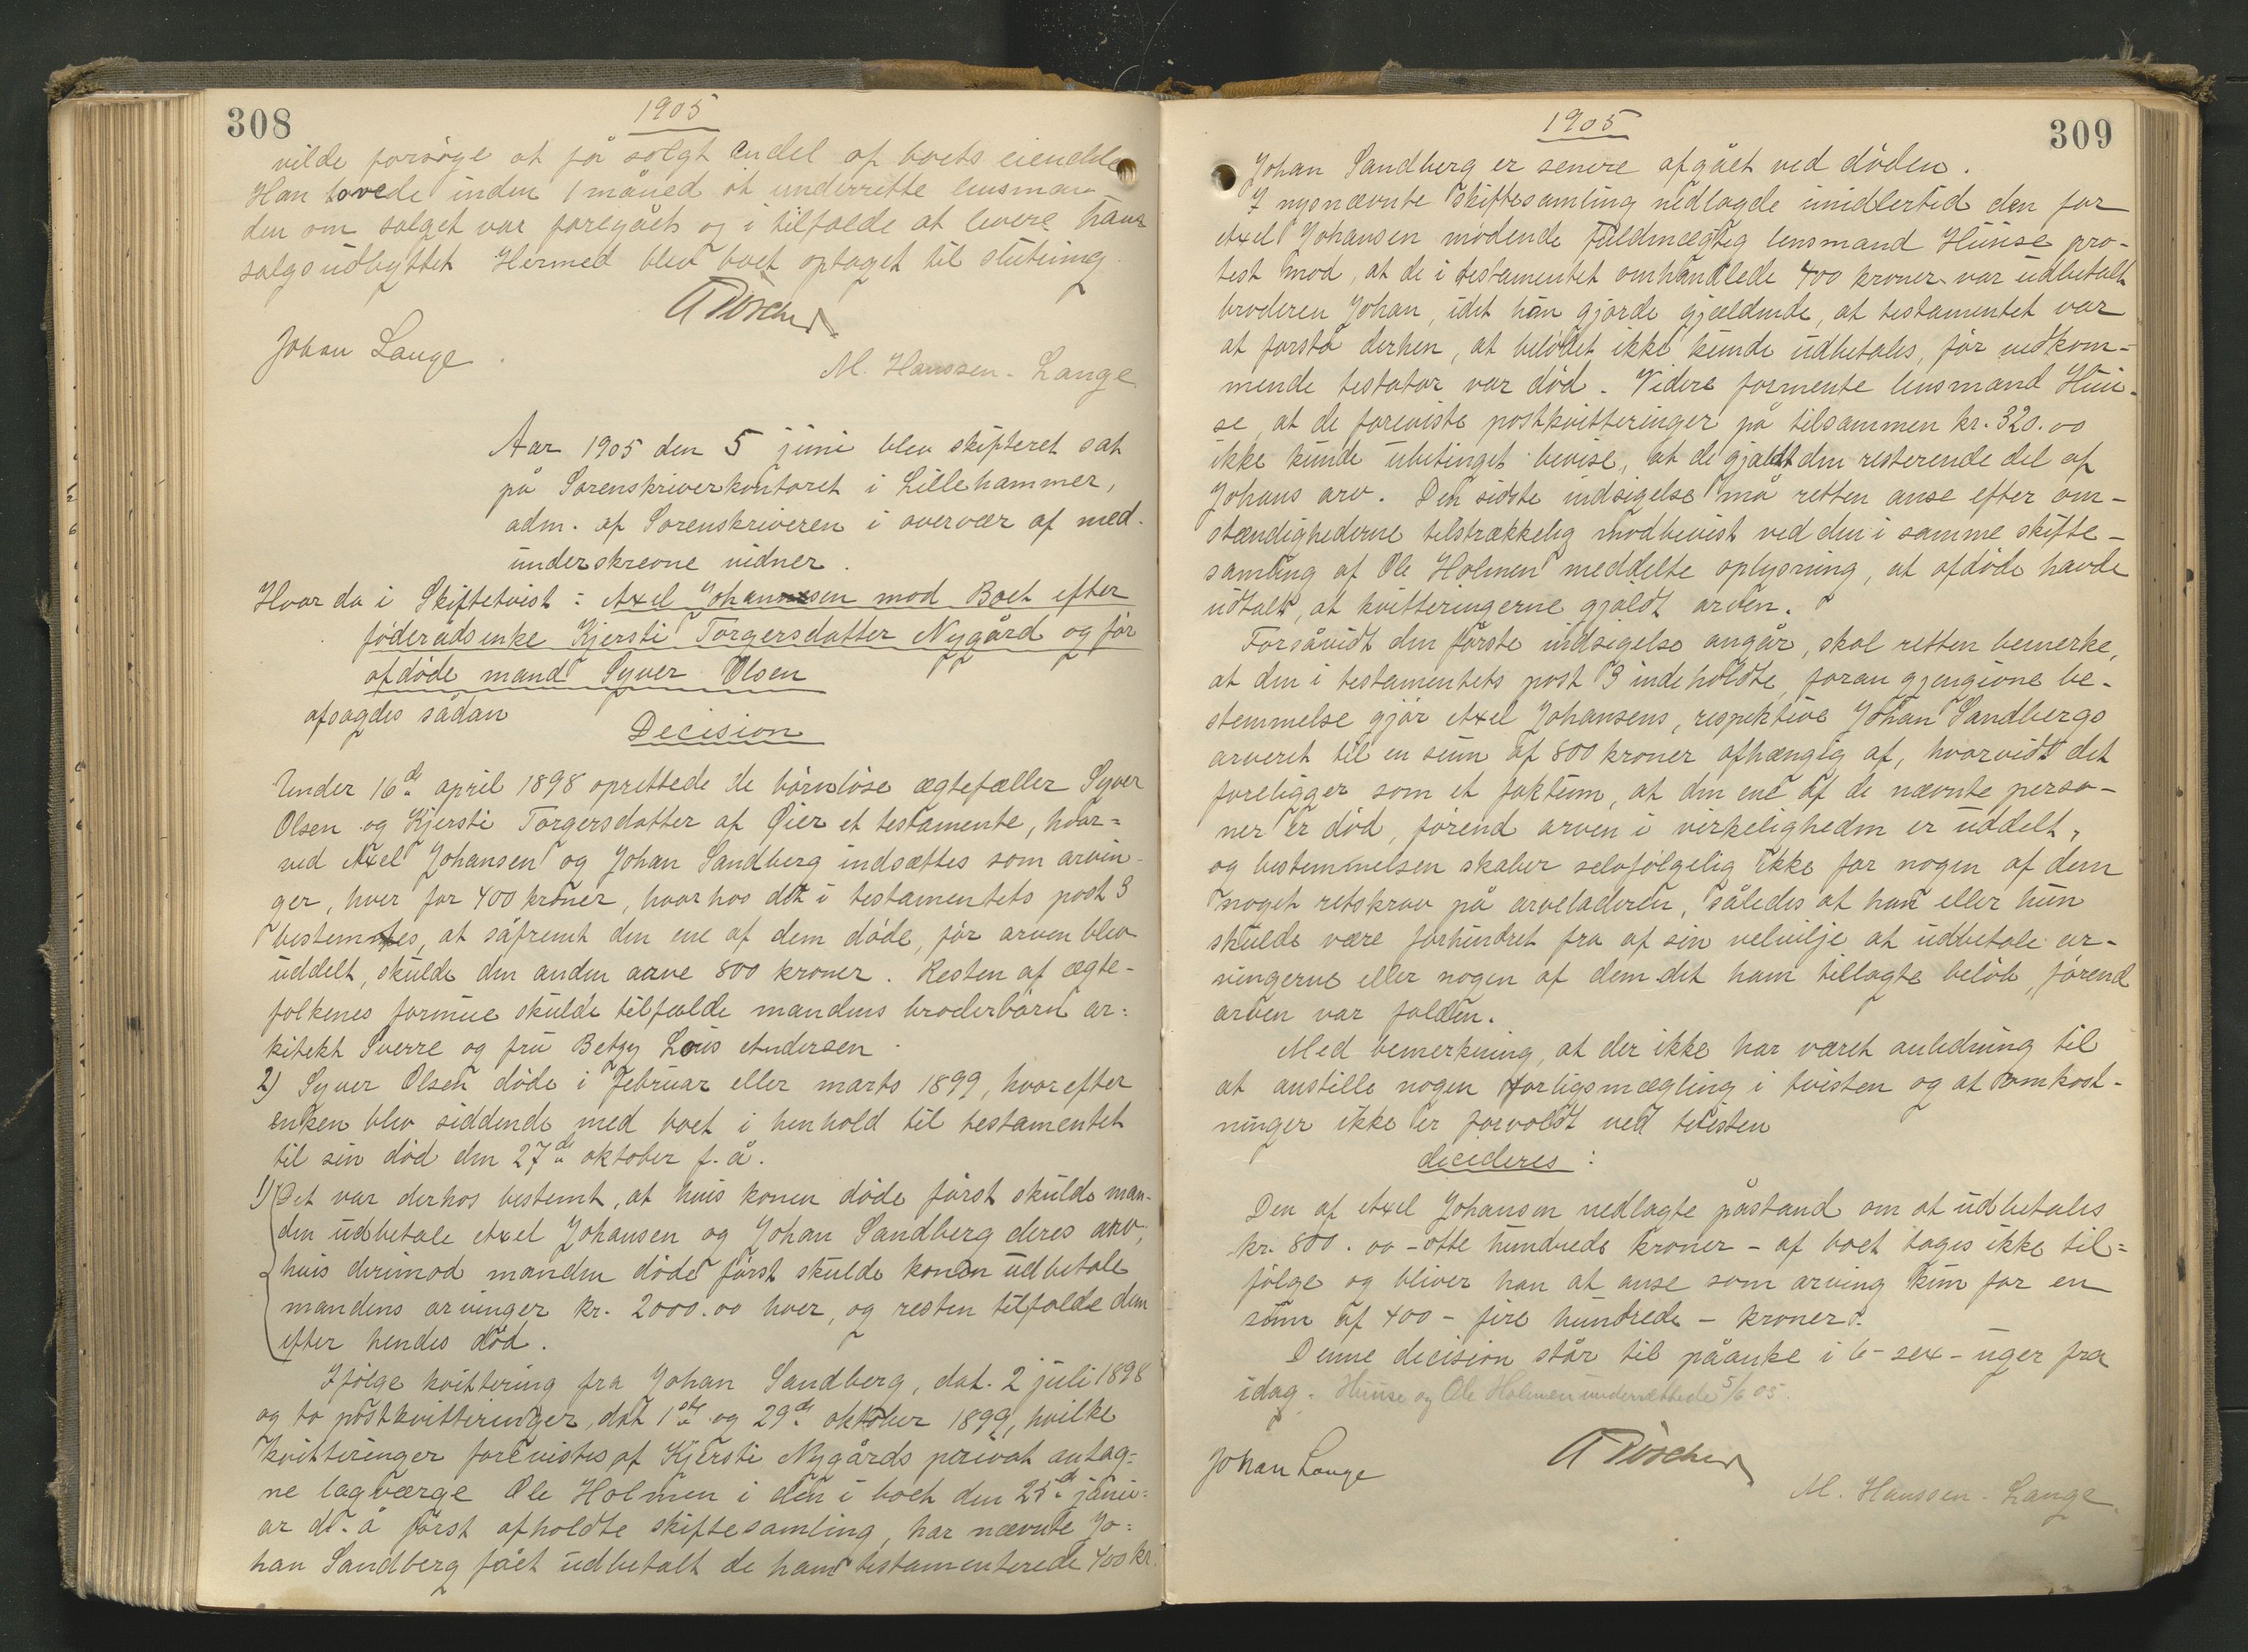 308
1905
vilde forsøge at få solgt endel af boets eiendele
Han lovede inden 1 måned at underrette lensman-
den om salget var foregået og i tilfælde at levere ham
salgsudbyttet Hermed blev boet optaget til slutning.
Johan Lange
M. Hanssen-Lange
Aar 1905 den 5 juni blev skifteret sat
på Sorenskriverkontoret i Lillehammer,
adm. af Sorenskriveren i overvær af med-
underskrevne vidner.
Hvor da i Skiftetvist: Axel Johannsen mod Boet efter
føderådsenke Kjersti Torgersdatter Nygård og før
afdøde mand Syver Olsen
afsagdes sådan
Decision
Under 16de april 1898 oprettede de børnløse ægtefæller Syver
Olsen og Kjersti Torgersdatter af Øier et testamente, hvor-
ved Axel Johansen og Johan Sandberg indsættes som arvin-
ger, hver for 400 kroner, hvorhos det i testamentets post 3
bestemtes, at såfremt den ene af dem døde, før arven blev
uddelt, skulde den anden arve 800 kroner. Resten af ægte-
folkenes formue skulde tilfalde mandens broderbørn ar=
kitekt Sverre og fru Betzy Louis Andersen.
2) Syver Olsen døde i februar eller marts 1899, hvorefter
enken blev siddende med boet i henhold til testamentet
til sin død den 27de oktober f. å.
1) Det var derhos bestemt, at hvis konen døde først skulde man-
den udbetale Axel Johansen og Johan Sandberg deres arv;
hvis derimod manden døde først skulde konen udbetale
mandens arvinger kr. 2000.00 hver, og resten tilfalde dem
efter hendes død.
Ifølge kvittering fra Johan Sandberg, dat. 2 juli 1898
og to postkvitteringer, dat 1ste og 29de oktober 1899, hvilke
kvitteringer forevistes af Kjersti Nygårds privat antag=
ne lagværge Ole Holmen i den i boet den 25de janu=
ar d. å først afholdte skiftesamling, har nævnte Jo=
han Sandberg fået udbetalt de ham testamenterede 400 kr.
309
1905
Johan Sandberg er senere afgået ved døden.
I nysnævnte skiftesamling nedlagde imidlertid den for
Axel Johansen mødende fuldmægtig lensmand Huuse pro-
test mod, at de i testamentet omhandlede 400 kroner var udbetalt
broderen Johan, idet han gjorde gjældende, at testamentet var
at forstå derhen, at beløbet ikke kunde udbetales, før vedkom-
mende testator var død. Videre formente lensmand Huu-
se, at de foreviste postkvitteringer på tilsammen kr. 320.00
ikke kunde ubetinget bevise, at de gjaldt den resterende del af
Johans arv. Den sidste indsigelse må retten anse efter om-
stændighederne tilstrækkelig modbevist ved den i samme skifte-
samling af Ole Holmen meddelte oplysning, at afdøde havde
udtalt, at kvitteringerne gjaldt arven.
Forsåvidt den første indsigelse angår, skal retten bemerke,
at den i testamentets post 3 indeholdte, foran gjengivne be-
stemmelse gjør Axel Johansens, respektive Johan Sandbergs
arveret til en sum af 800 kroner afhængig af, hvorvidt det
foreligger som et faktum, at den ene af de nævnte perso-
ner er død, førend arven i virkeligheden er uddelt,
og bestemmelsen skaber selvfølgelig ikke for nogen af dem
noget retskrav på arveladeren, således at han eller hun
skulde være forhindret fra af sin velvilje at udbetale ar-
vingerne eller nogen af dem det ham tillagte beløb, førend
arven var falden.
Med bemerkning, at der ikke har været anledning til
at anstille nogen forligsmægling i tvisten og at omkost-
ninger ikke er forvoldt ved tvisten
decideres:
Den af Axel Johansen nedlagte påstand om at udbetales
kr. 800.00 - otte hundrede kroner - af boet tages ikke til=
følge og bliver han at anse som arving kun for en
sum af 400 - fire hundrede - kroner.
Denne decision står til påanke i 6 - sex - uger fra
idag. Huuse og Ole Holmen underrettede 5/6 05.
Johan Lange
M. Hanssen-Lange